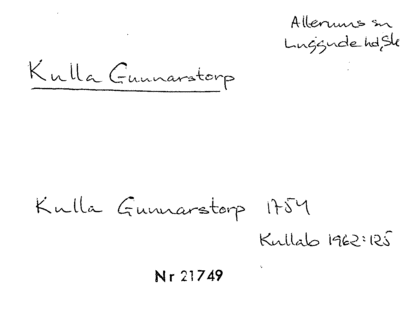 Allerums sn
Luggude hd, Sk
Kulla Gunnarstorp
Kulla Gunnarstorp 1754
Kullab 1962:125
Nr 21749